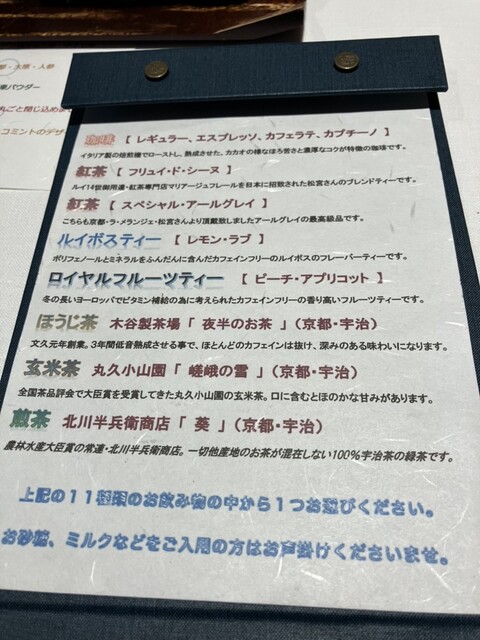 ・人参
パウダー
コミントのデザ
珈琲 【 レギュラー、エスプレッソ、カフェラテ、カプチーノ 】
イタリア製の焙煎機でローストし、熟成させた、カカオの様なほろ苦さと濃厚なコクが特徴の珈琲です。
紅茶 【 フリュイ・ド・シーヌ 】
ルイ14世御用達・紅茶専門店マリアージュフレールを日本に招致された松宮さんのブレンドティーです。
紅茶 【 スペシャル・アールグレイ 】
こちらも京都・ラ・メランジェ・松宮さんより頂戴致しましたアールグレイの最高級品です。
ルイボスティー 【 レモン・ラブ 】
ポリフェノールとミネラルをふんだんに含んだカフェインフリーのルイボスのフレーバーティーです。
ロイヤルフルーツティー 【 ピーチ・アプリコット 】
冬の長いヨーロッパでビタミン補給の為に考えられたカフェインフリーの香り高いフルーツティーです。
ほうじ茶 木谷製茶場「 夜半のお茶 」（京都・宇治）
文久元年創業。3年間低音熟成させる事で、ほとんどのカフェインは抜け、深みのある味わいになります。
玄米茶 丸久小山園「 嵯峨の雪 」（京都・宇治）
全国茶品評会で大臣賞を受賞してきた丸久小山園の玄米茶。口に含むとほのかな甘みがあります。
煎茶 北川半兵衛商店「 葵 」（京都・宇治）
農林水産大臣賞の常連・北川半兵衛商店。一切他産地のお茶が混在しない100％宇治茶の緑茶です。
上記の１１種類のお飲み物の中から１つお選びください。
お砂糖、ミルクなどをご入用の方はお声掛けくださいませ。